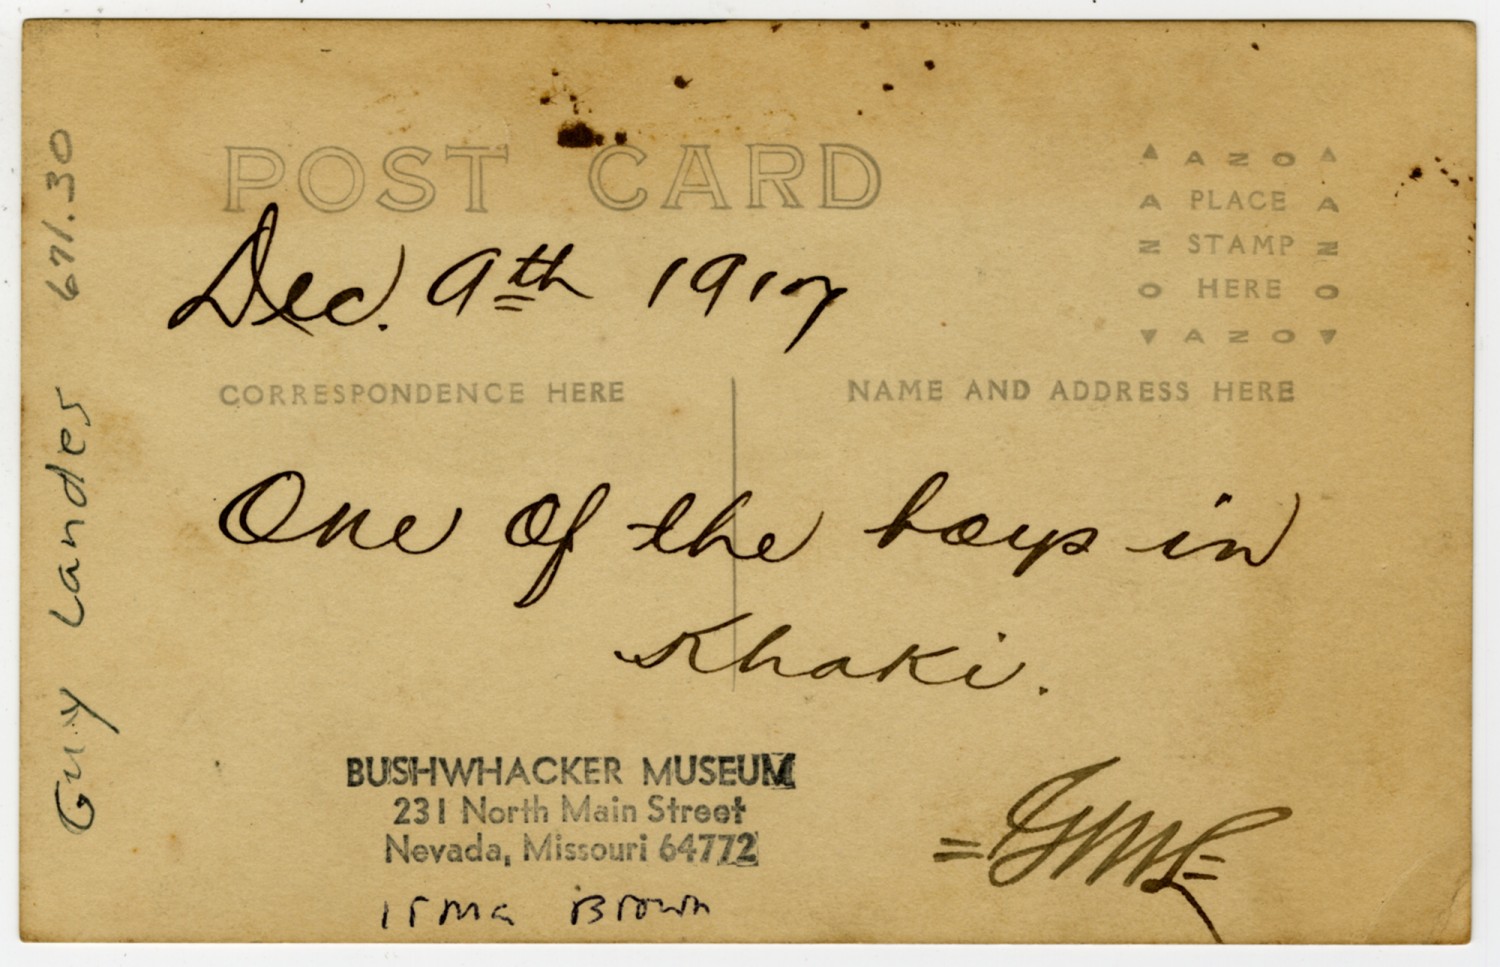 POST CARD
Dec. 9th 1917
AZO
PLACE
STAMP
HERE
AZO
AZO
AZO
CORRESPONDENCE HERE
NAME AND ADDRESS HERE
One of the boys in
Khaki.
BUSHWHACKER MUSEUM
231 North Main Street
Nevada, Missouri 64772
Irma Brown
Guy Landes 671.30